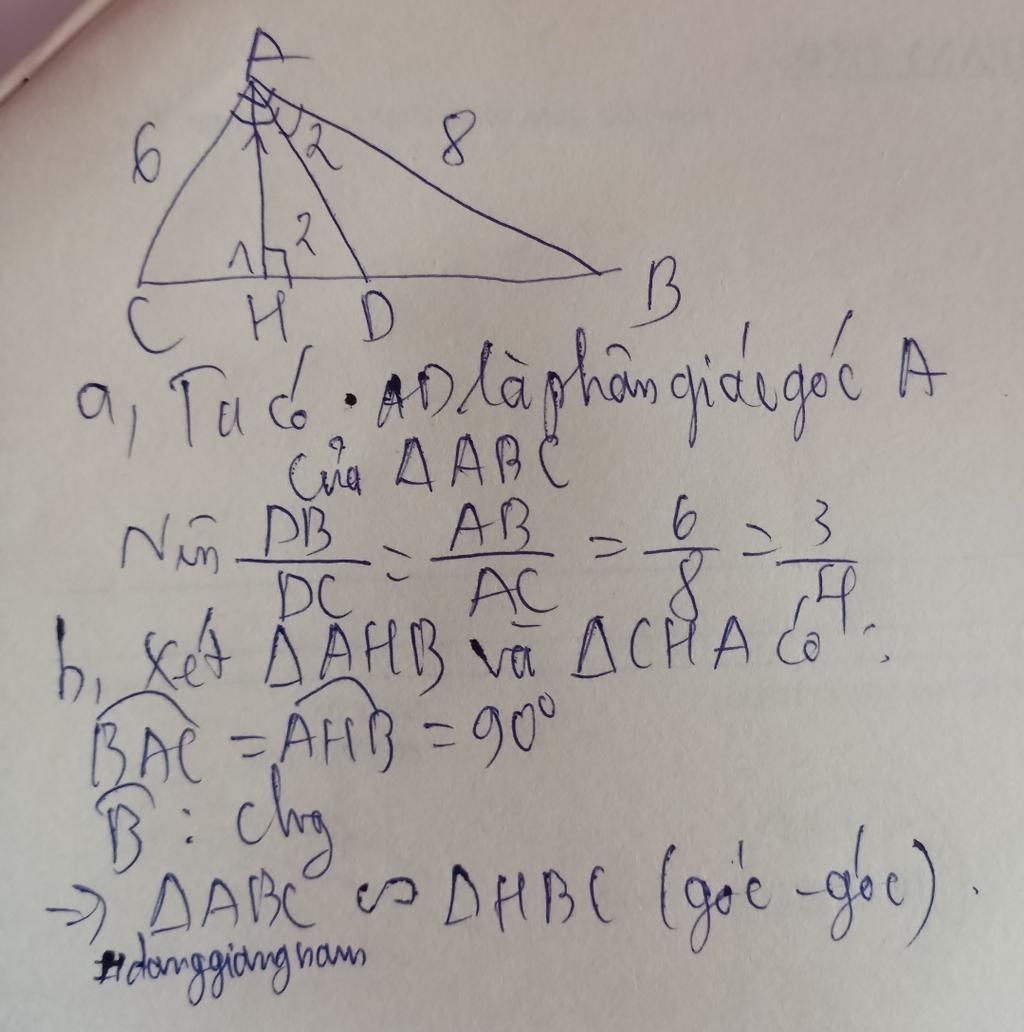 A
6
2
8
1
2
C H D
B
a, Ta có AD là phân giác góc A
của ΔABC
Nên DB/DC = AB/AC = 6/8 = 3/4
b, Xét ΔAHB và ΔCHA có:
BAC = AHB = 90°
B : chg
=> ΔABC ∽ ΔHBC (góc - góc).
danggiangnam